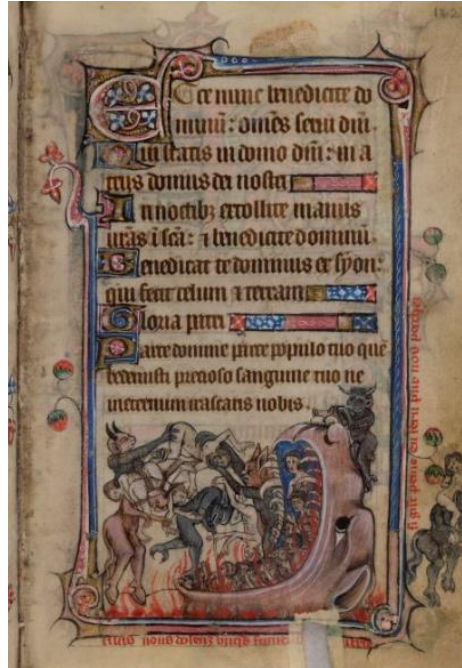 Cce nunc benedicite do
minū: omēs serui dn̄i.
Qui statis in domo dn̄i: in a
triis domus dei nostri
In noctibz extollite manus
uras ī scā: ⁊ benedicite dominū.
Benedicat te dominus ex syon:
qui fecit celum ⁊ terram
Gloria patri
Parce domine parce populo tuo quē
redemisti precioso sanguine tuo ne
in eternum irascaris nobis.